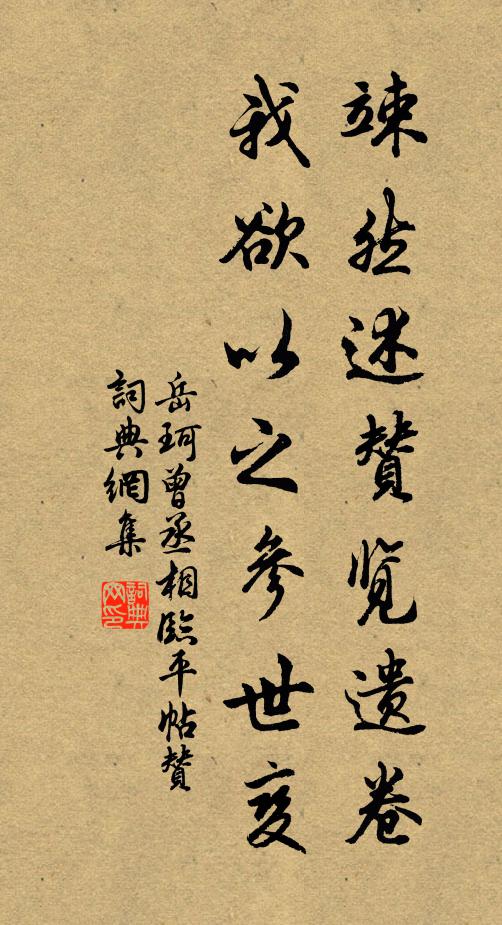 竦然述賛览遗卷
我欲以之参世变
岳珂曾丞相臨平帖賛
詞典網集
詞典网印